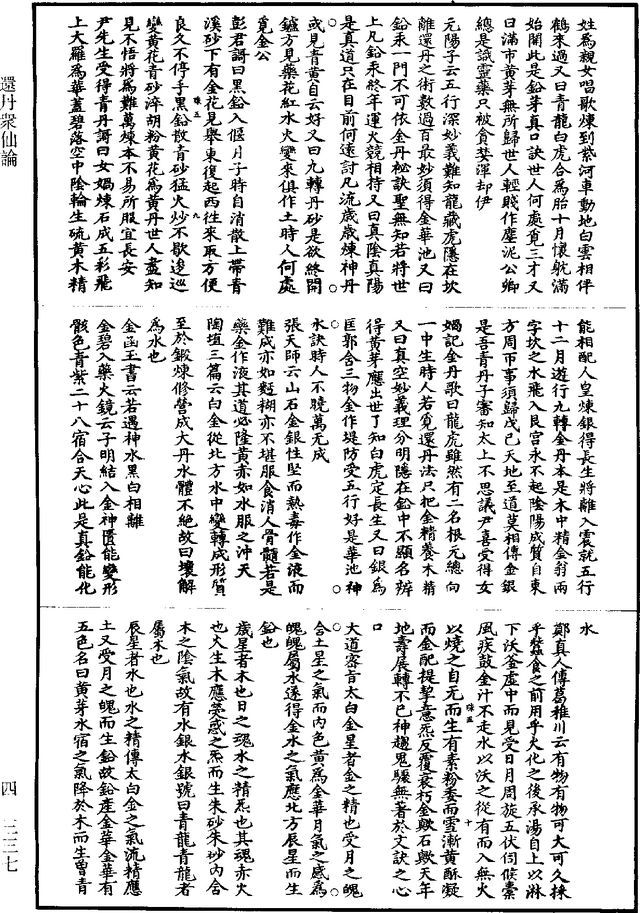 姓為親女唱歌煉到紫河車動地白雲相伴
鶴來過又曰青龍白虎合為胎十月懷躭滿
始開此是鉛芽真口訣世人何處覓三才又
曰滿市黃芽無所歸世人輕賤作塵泥公卿
總是識靈藥只被貪婪渾却伊
元陽子云五行深妙義難知龍藏虎隱在坎
離還丹之術數過百最妙須得金華池又曰
鉛汞一門不可依金丹秘訣聖無知若將世
上凡鉛汞終年運火競相持又曰真陰真陽
是真道只在目前何遠討凡流歲歲煉神丹
或見青黃自云好又曰九轉丹砂是欲終開
鑪方見藥花紅水火變來俱作土時人何處
覓金公
彭君謌曰黑鉛入偃月子時自消散上帶青
溪砂下有金花見舉東復起西往來取方便
良久不停手黑鉛散青砂猛火炒不歇逡巡
變黃花青砂淬胡粉黃花為黃丹世人盡知
見不悟將為難萬煉本不易所服宜長安
尹先生受得青丹謌曰女媧煉石成五彩飛
上大羅為華蓋碧落空中陰輪生硫黃木精
能相配人皇煉銀得長生將離入震就五行
十二月遊行九轉金丹本是木中精金翁兩
字坎之水飛入艮宮永不起陰陽成質自東
方周帀事須歸戊己天地至道莫相傳金銀
是吾青丹子審知太上不思議尹喜受得女
媧記金丹歌曰龍虎雖然有二名根元總向
一中生時人若覓還丹法只把金精養木精
又曰真空妙義理分明隱在鉛中不顯名辨
得黃芽應出世了知白虎定長生又曰銀為
匡郭含三物金作堤防受五行好是華池神
水訣時人不曉萬无成
張天師云山石金銀性堅而熱毒作金液而
難成亦如麪糊亦不堪服食消人骨髓若是
藥金作液其道必隆黃亦如水服之沖天
陶埴三篇云白金從北方水中變轉成形質
至於鍛煉修營成大丹水體不絕故曰壞解
為水也
金函玉書云若遇神水黑白相離
金碧入藥火鏡云子明結入金神匱能變形
骸色青紫二十八宿合天心此是真鉛能化
水
鄭真人傳葛稚川云有物有物可大可久採
乎蠶食之前用乎火化之後承湯自上以淋
下沃釜虛中而見受日月周旋五伏伺候橐
風疾鼓金汁不走水以沃之從有而入無火
以燒之自无而生有素粉委而雪漸黃酥凝
而金配提挈意炁反覆衰朽金歟石歟天年
地壽展轉不已神趨鬼驟無著於文訣之心
口
大道密言太白金星者金之精也受月之魄
合土星之氣而內色黃為金華月氣之感為
魄魄屬水遂得金水之氣應北方辰星而生
鉛也
歲星者木也日之魂水之精炁也其魂赤火
也火生木應熒惑之炁而生朱砂朱砂內含
木之陰氣故有水銀水銀號曰青龍青龍者
屬木也
辰星者水也水之精傳太白金之氣流精應
土又受月之魄而生鉛故鉛產金華金華有
五色名曰黃芽水宿之氣降於木而生曾青
還丹眾仙論
四 三三七